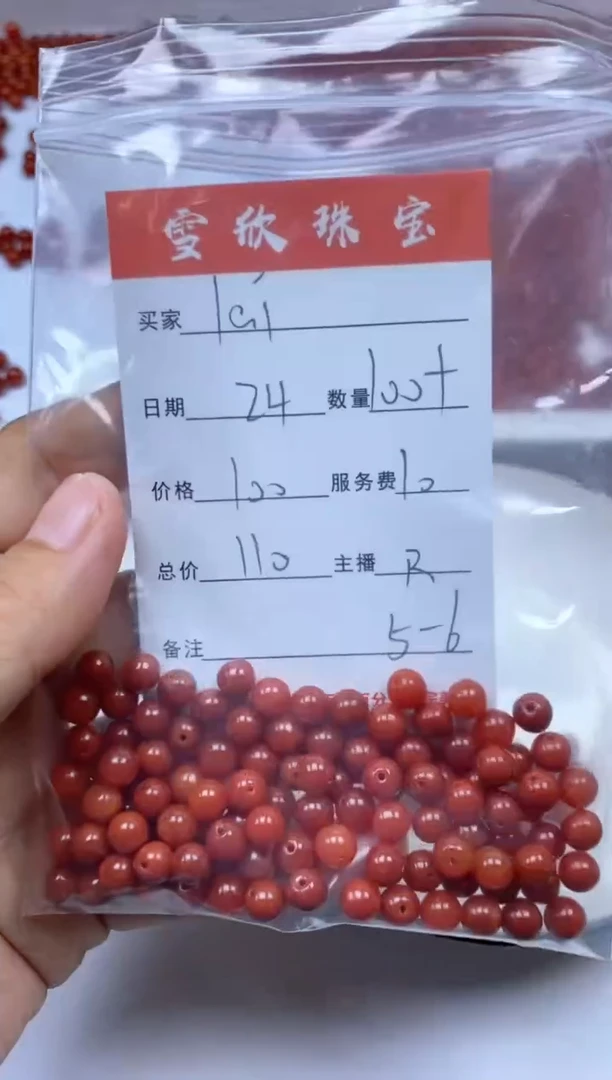 雪欣珠宝
买家
日期 24 数量 100+
价格 100 服务费 10
总价 110 主播 R
备注 5-6